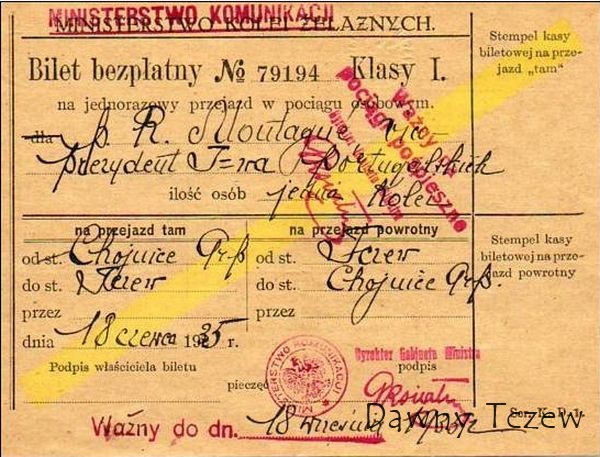 MINISTERSTWO KOMUNIKACJI
MINISTERSTWO KOLEI ŻELAZNYCH.
Bilet bezpłatny № 79194 Klasy I.
na jednorazowy przejazd w pociągu osobowym.
dla p. R. Montagué vice
prezydent T=wa Portugalskich
ilość osób jedna Kolei
Ważny na
pociągi pospieszne
na przejazd tam
od st. Chojnice Gr.p.
do st. Tczew
przez
dnia 18 czerwca 1935 r.
na przejazd powrotny
od st. Tczew
do st. Chojnice Gr.p.
przez
Podpis właściciela biletu
pieczęć
MINISTERSTWO KOMUNIKACJI
Dyrektor Gabinetu Ministra
podpis
Ważny do dn. 18 września 1935 r.
Stempel kasy
biletowej na prze-
jazd „tam"
Stempel kasy
biletowej na prze-
jazd powrotny
Ser. K. P. I.
Dawny Tczew